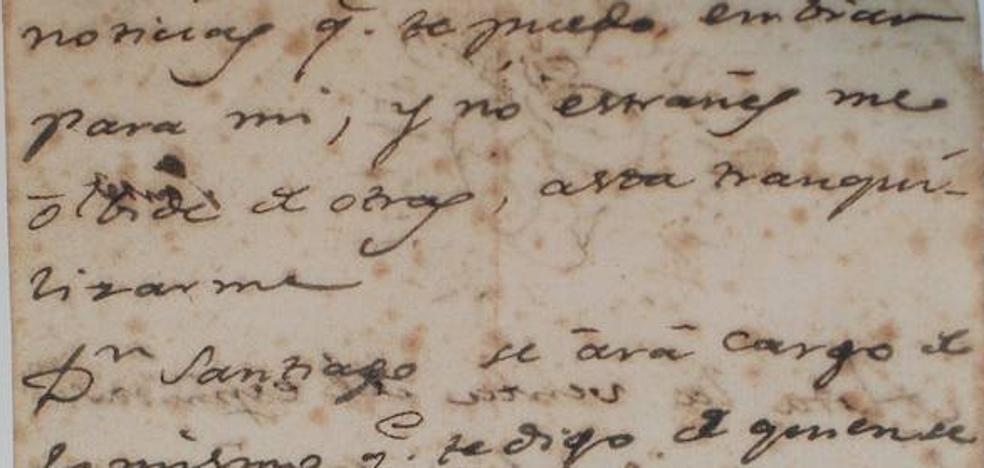 noticias q. te puedo embiar
para mi, y nó estrañes me
olbide de otras, asta tranqui-
lizarme
Dn Santiago se ará cargo de
lo mismo q. te digo de quien se